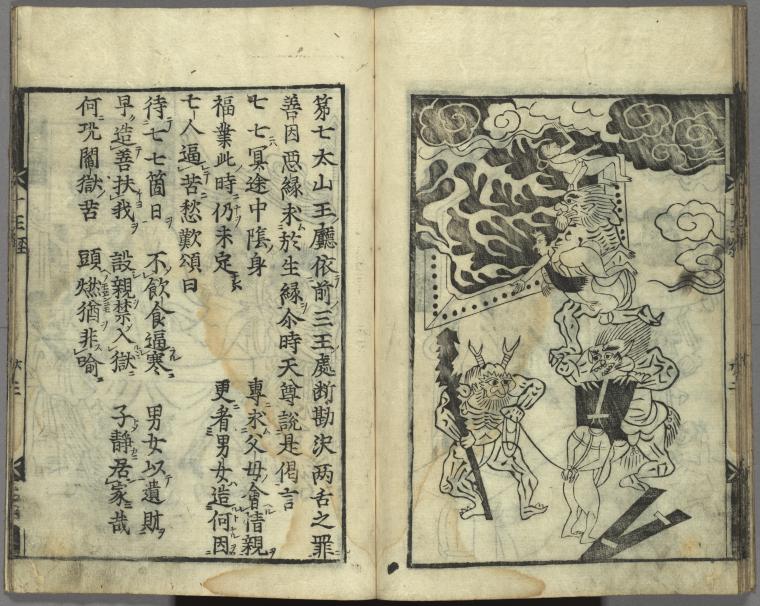 第七太山王廳依前三王處断勘決两舌之罪
善因惡緣求於生緣尒時天尊説是偈言
七七冥途中陰身 專求父母會情親
福業此時仍未定 更看男女造何因
亡人逼苦愁歎頌曰
待七七箇日 不飲食逼寒 男女以遺財
早造善扶我 設親禁入獄 子静居家哉
何况閻獄苦 頭燃猶非喻
十王經